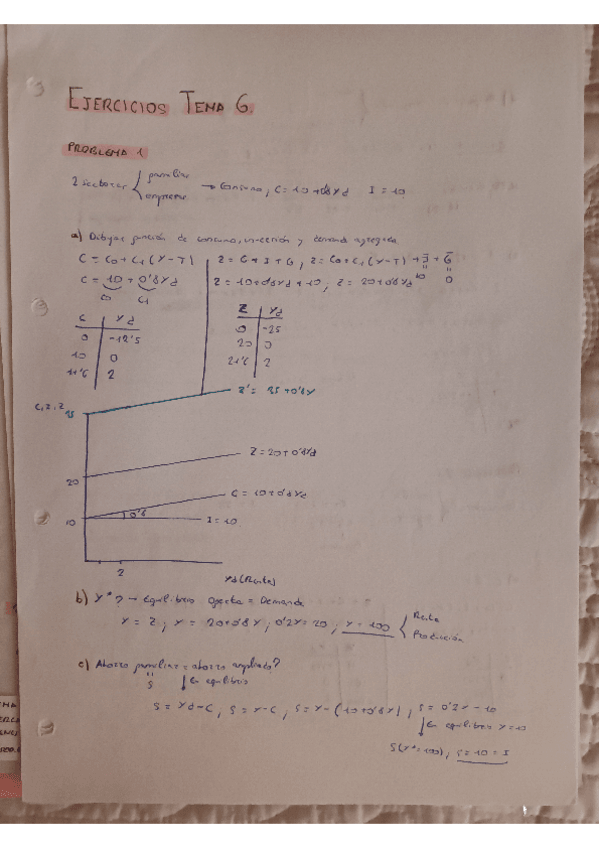 EJERCICIOS TEMA 6.
PROBLEMA 1
2 sectores familiar → Consumo, C = 10 + 0'8Yd I = 10
empresas
a) Dibujar función de consumo, inversión y demanda agregada
C = C0 + C1 (Y-T)
C = 10 + 0'8Yd
C0 C1
Z = C + I + G, Z = C0 + C1 (Y-T) + I + G
Z = 10 + 0'8Yd + 10; Z = 20 + 0'8Yd 10 0
C Yd
0 -12'5
10 0
11'6 2
Z Yd
0 -25
20 0
21'6 2
Z' = 25 + 0'8Y
20
Z = 20 + 0'8Yd
C = 10 + 0'8Yd
10
0'8
I = 10
2
Yd (Renta)
b) Y*? → Equilibrio Oferta = Demanda
Y = Z, Y = 20 + 0'8Y, 0'2Y = 20, Y = 100 Renta
Producción
c) Ahorro familiar = ahorro ampliado?
S En equilibrio
S = Yd - C, S = Y - C, S = Y - (10 + 0'8Y), S = 0'2Y - 10
En equilibrio Y = 10
S(Y* = 100), S = 10 = I